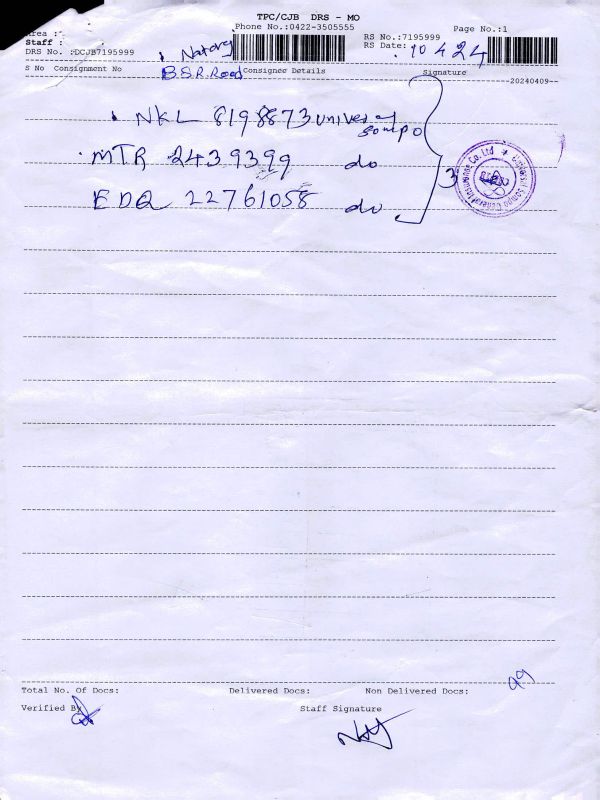 TPC/CJB DRS - MO
Phone No.:0422-3505555
Page No.:1
Area :
Staff :
RS No.:7195999
DRS No. :DCJB7195999
Nataraj
RS Date: 10 4 24
S No Consignment No
B.S.R. Road
Consignee Details
Signature
20240409
NKL 8198873 Universal Sompo
MTR 2439399 do
EDQ 22761058 do
3
Universal Sompo General Insurance Co. Ltd
Total No. Of Docs:
Delivered Docs:
Non Delivered Docs:
99
Verified By
Staff Signature